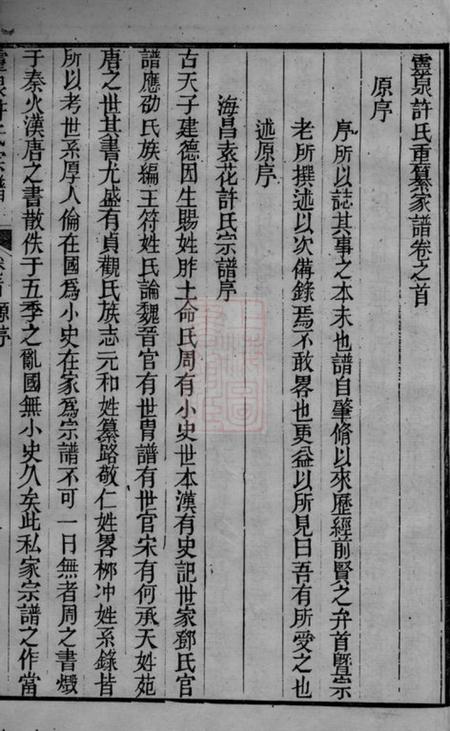 靈泉許氏重纂家譜卷之首
原序
序所以誌其事之本末也譜自肇脩以來歷經前賢之弁首暨宗
老所撰述以次備錄焉不敢畧也更益以所見曰吾有所受之也
述原序
海昌袁花許氏宗譜序
古天子建德因生賜姓胙土命氏周有小史世本漢有史記世家鄧氏官
譜應劭氏族編王符姓氏論魏晉官有世胄譜有世官宋有何承天姓苑
唐之世其書尤盛有貞觀氏族志元和姓纂路敬仁姓畧栁冲姓系錄皆
所以考世系厚人倫在國為小史在家爲宗譜不可一日無者周之書燬
于秦火漢唐之書散佚于五季之亂國無小史久矣此私家宗譜之作當
靈泉許氏宗譜
原序